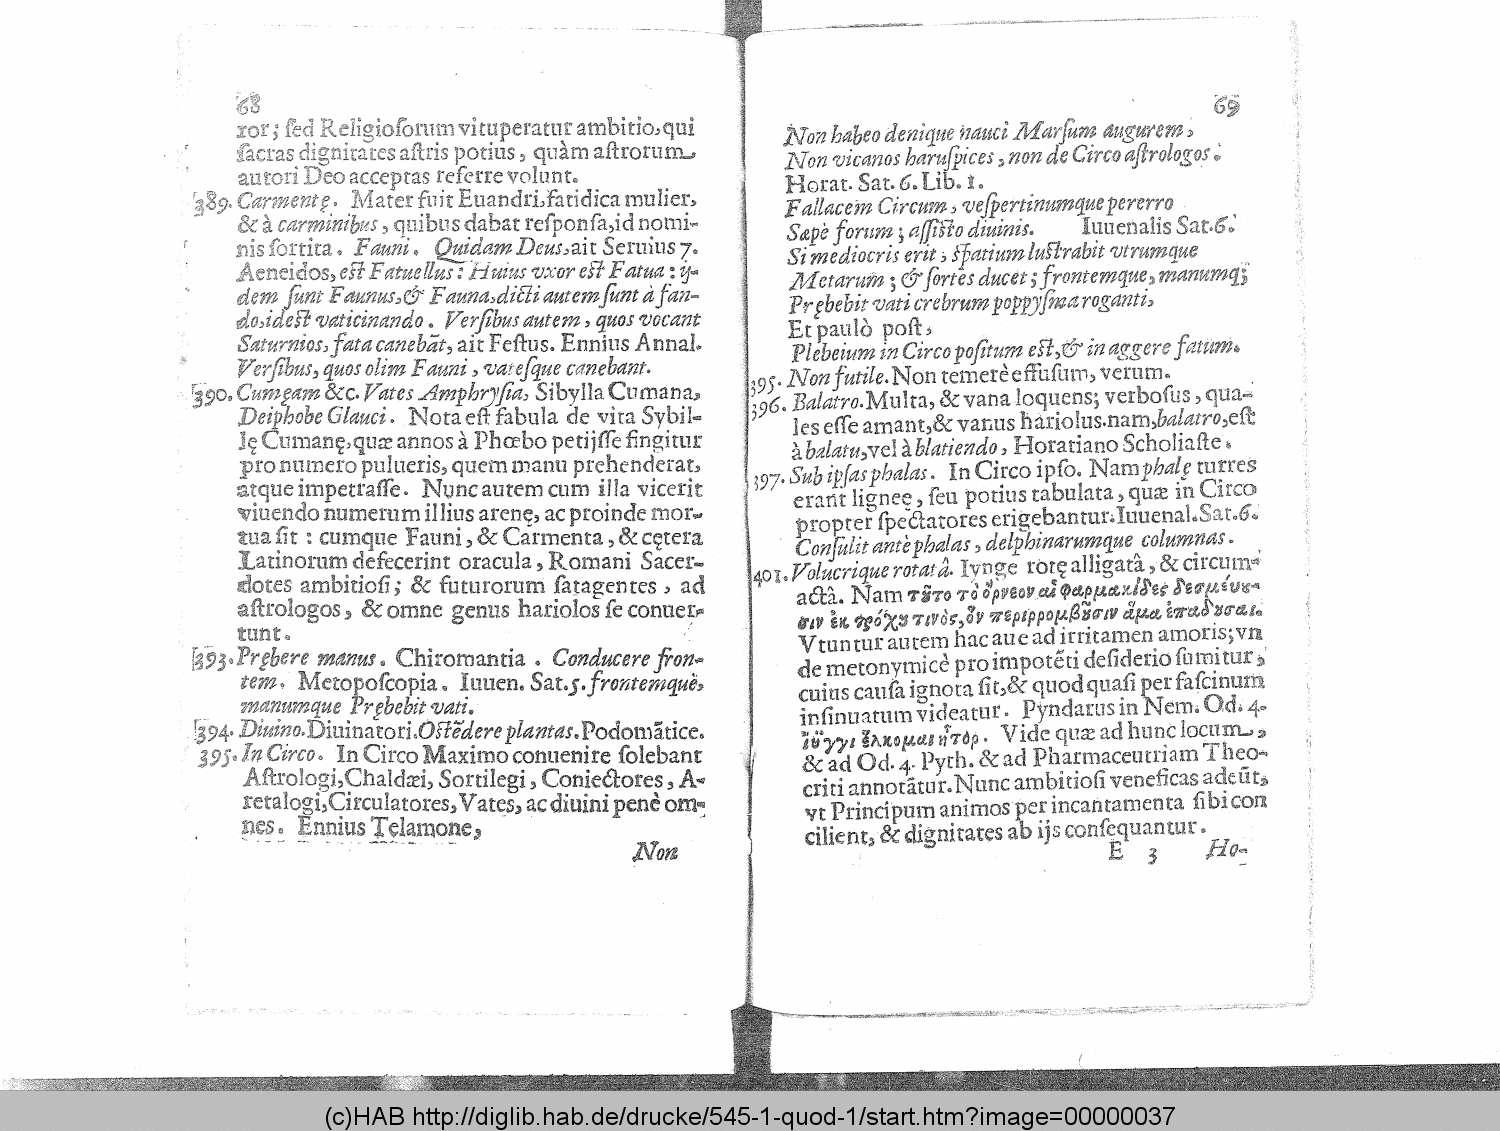 68
ror; ſed Religioſorum vituperatur ambitio, qui
ſacras dignitates aſtris potius, quàm aſtrorum
autori Deo acceptas referre volunt.
389. Carmentę. Mater fuit Euandri, fatidica mulier,
& à carminibus, quibus dabat reſponſa, id nomi-
nis ſortita. Fauni. Quidam Deus, ait Seruius 7.
Aeneidos, eſt Fatuellus: Huius vxor eſt Fatua: ij-
dem ſunt Faunus, & Fauna, dicti autem ſunt à fan-
do, ideſt vaticinando. Verſibus autem, quos vocant
Saturnios, fata canebāt, ait Feſtus. Ennius Annal.
Verſibus, quos olim Fauni, vateſque canebant.
390. Cumęam &c. Vates Amphryſia, Sibylla Cumana,
Deiphobe Glauci. Nota eſt fabula de vita Sybil-
lę Cumanę, quæ annos à Phœbo petijſſe fingitur
pro numero pulueris, quem manu prehenderat,
atque impetraſſe. Nunc autem cum illa vicerit
viuendo numerum illius arenę, ac proinde mor-
tua ſit: cumque Fauni, & Carmenta, & cętera
Latinorum defecerint oracula, Romani Sacer-
dotes ambitioſi; & futurorum ſatagentes, ad
aſtrologos, & omne genus hariolos ſe conuer-
tunt.
393. Prębere manus. Chiromantia. Conducere fron-
tem. Metopoſcopia. Iuuen. Sat. 5. frontemquè,
manumque Prębebit vati.
394. Diuino. Diuinatori. Oſtēdere plantas. Podomātice.
395. In Circo. In Circo Maximo conuenire ſolebant
Aſtrologi, Chaldæi, Sortilegi, Coniectores, A-
retalogi, Circulatores, Vates, ac diuini penè om-
nes. Ennius Telamone,
Non
69
Non habeo denique nauci Marſum augurem,
Non vicanos haruſpices, non de Circo aſtrologos.
Horat. Sat. 6. Lib. 1.
Fallacem Circum, veſpertinumque pererro
Sæpè forum; aſſiſto diuinis. Iuuenalis Sat. 6.
Si mediocris erit, ſpatium luſtrabit vtrumque
Metarum; & ſortes ducet; frontemque, manumq;
Prębebit vati crebrum poppyſma roganti,
Et paulò poſt,
Plebeium in Circo poſitum eſt, & in aggere fatum.
395. Non futile. Non temerè effuſum, verum.
396. Balatro. Multa, & vana loquens; verboſus, qua-
les eſſe amant, & vanus hariolus. nam, balatro, eſt
à balatu, vel à blatiendo, Horatiano Scholiaſte.
397. Sub ipſas phalas. In Circo ipſo. Nam phalę turres
erant ligneę, ſeu potius tabulata, quæ in Circo
propter ſpectatores erigebantur. Iuuenal. Sat. 6.
Conſulit antè phalas, delphinarumque columnas.
401. Volucrique rotatâ. Iynge rotę alligatâ, & circúm-
actâ. Nam τȣ̃το τὸ ὄρνεον αἱ φαρμακίδες δεσμεύȣ-
σιν ἐκ τρόχȣ τινὸς, ὃν περιρρομβȣ̃σιν ἅμα ἐπαδȣσαι.
Vtuntur autem hac aue ad irritamen amoris; vn
de metonymicè pro impotēti deſiderio ſumitur,
cuius cauſa ignota ſit, & quod quaſi per faſcinum
inſinuatum videatur. Pyndarus in Nem. Od. 4.
ἴϋγγι ἕλκομαι ἦτορ. Vide quæ ad hunc locum,
& ad Od. 4. Pyth. & ad Pharmaceutriam Theo-
criti annotātur. Nunc ambitioſi veneficas adeūt,
vt Principum animos per incantamenta ſibi con
cilient, & dignitates ab ijs conſequantur.
E 3 Ho-
(c)HAB http://diglib.hab.de/drucke/545-1-quod-1/start.htm?image=00000037